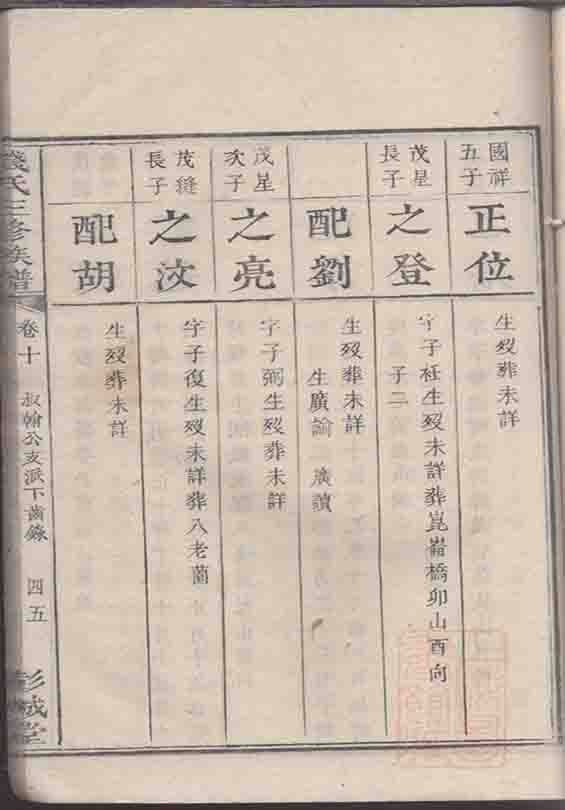 國祥
五子
正位
生歿葬未詳
茂星
長子
之登
字子衽生歿未詳葬崑崙橋卯山酉向
子二
配劉
生歿葬未詳
生廣論 廣讀
茂星
次子
之亮
字子弼生歿葬未詳
茂縫
長子
之汶
字子復生歿未詳葬入老蘭
配胡
生歿葬未詳
錢氏三修族譜
卷十
叔翰公支派下齒錄
四五
彭城堂